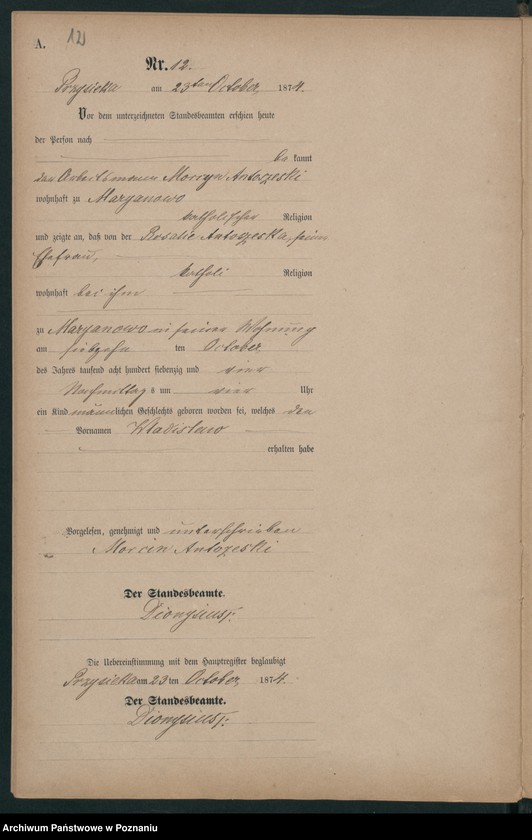 A.
12
Nr. 12.
Przysieka am 23ten October, 1874.
Vor dem unterzeichneten Standesbeamten erschien heute
der Person nach
be kannt
den Arbeitsmann Morcyn Antoszeski
wohnhaft zu Marganowo
katholischer Religion
und zeigte an, daß von der Rosalie Antoszeska, seine
Ehefrau,
katholi Religion
wohnhaft bei ihm
zu Marganowo in seiner Wohnung
am siebzehn ten October,
des Jahres tausend acht hundert siebenzig und vier
Nachmittag s um vier Uhr
ein Kind männlichen Geschlechts geboren worden sei, welches den
Vornamen Wladislaw
erhalten habe
Vorgelesen, genehmigt und unterschrieben
Morcin Antoszeski
Der Standesbeamte.
Dionysius
Die Uebereinstimmung mit dem Hauptregister beglaubigt
Przysieka am 23 ten October, 1874.
Der Standesbeamte.
Dionysius
Archiwum Państwowe w Poznaniu